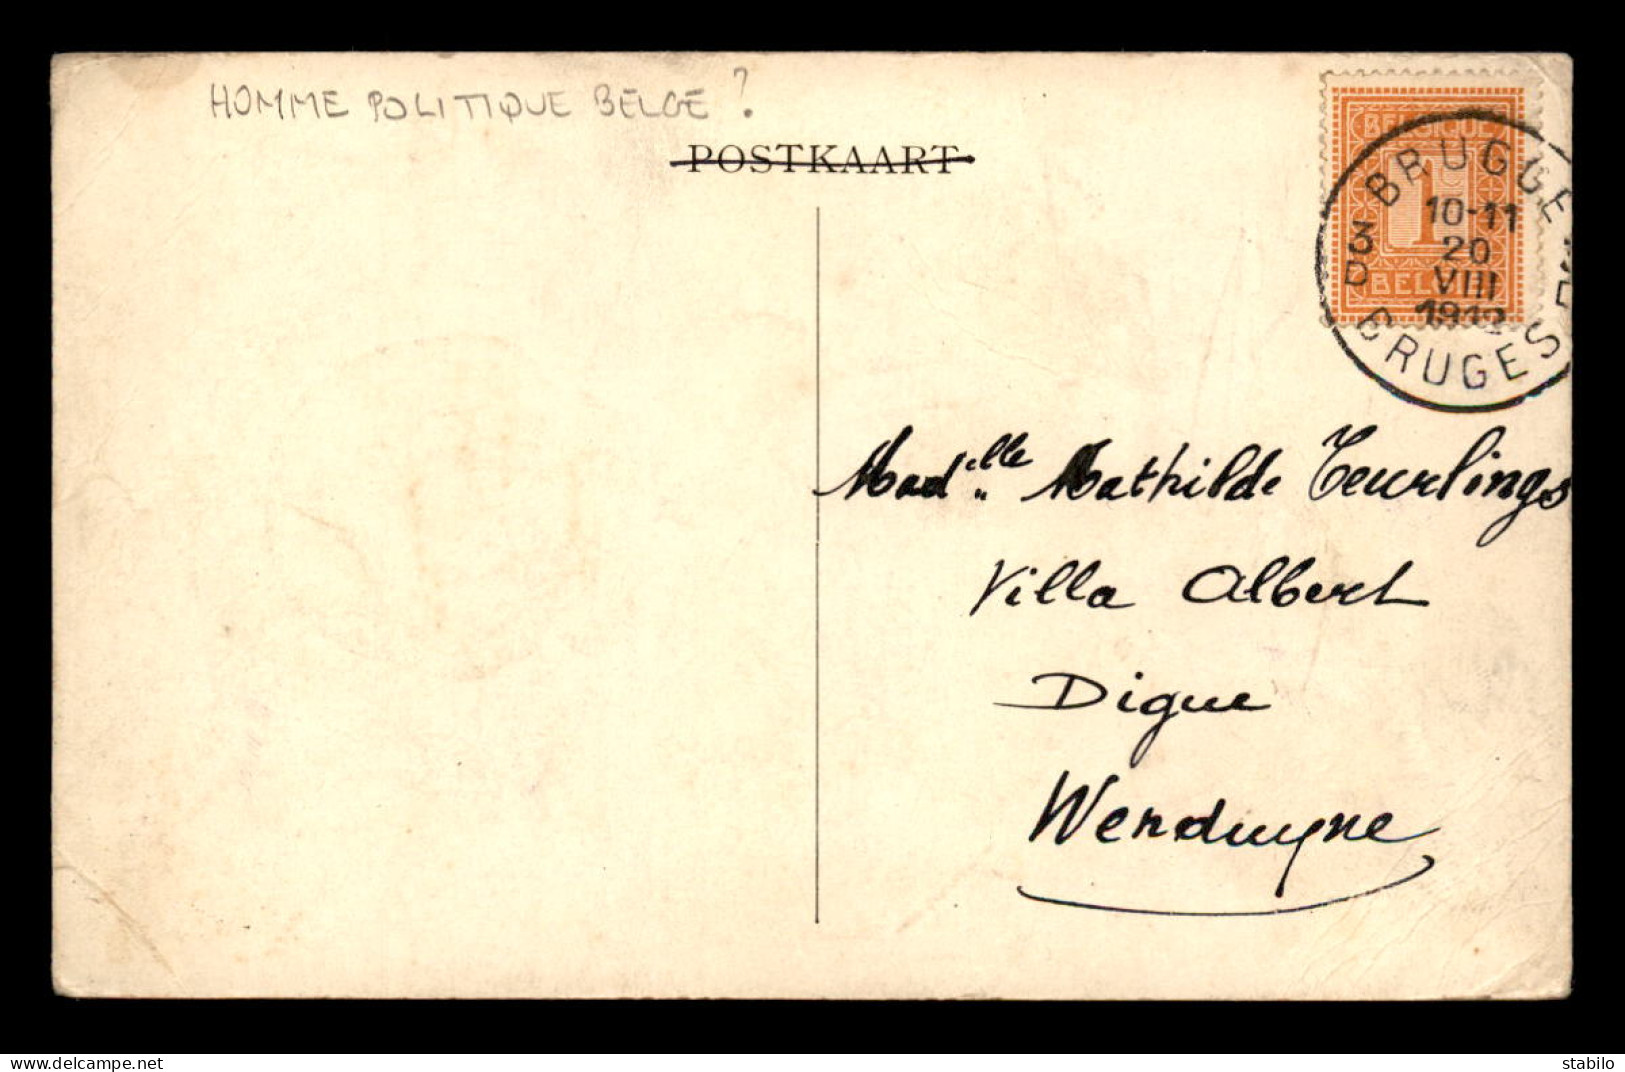 HOMME POLITIQUE BELGE ?
POSTKAART
BELGIQUE
1 C
BELGIË
BRUGGE
10-11
20
VIII
1912
3
D
BRUGES
Mad'elle Mathilde Teurlings
Villa Albert
Digue
Wenduyne
www.delcampe.net
stabilo